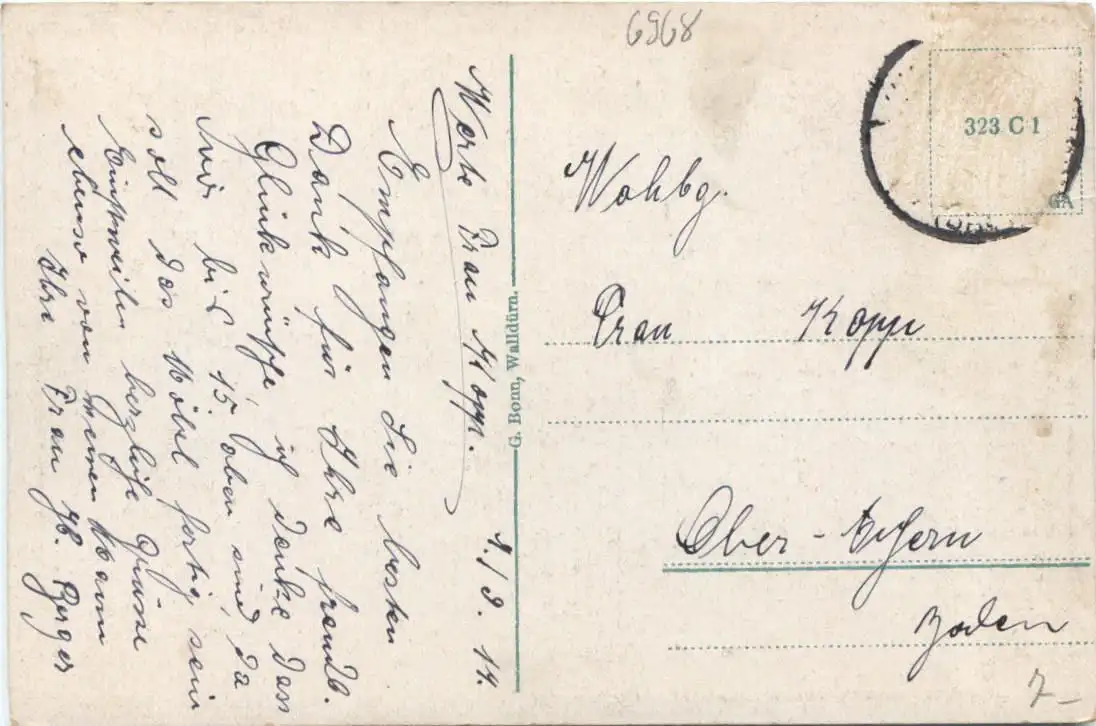 6968
Werte Frau Kopp.
4./9. 14.
Empfangen Sie besten
Dank für Ihre freudb.
Glückwünsche, ich danke das
wir bis 15. oben sind, da
soll das Möbel fertig sein
Einstweilen herzliche Grüsse
ebenso von meinen Mann
Ihre Frau H. Berger
G. Bonn, Walldürn.
323 C 1
GA
Wohbg.
Frau Kopp
Ober-
Baden
7-